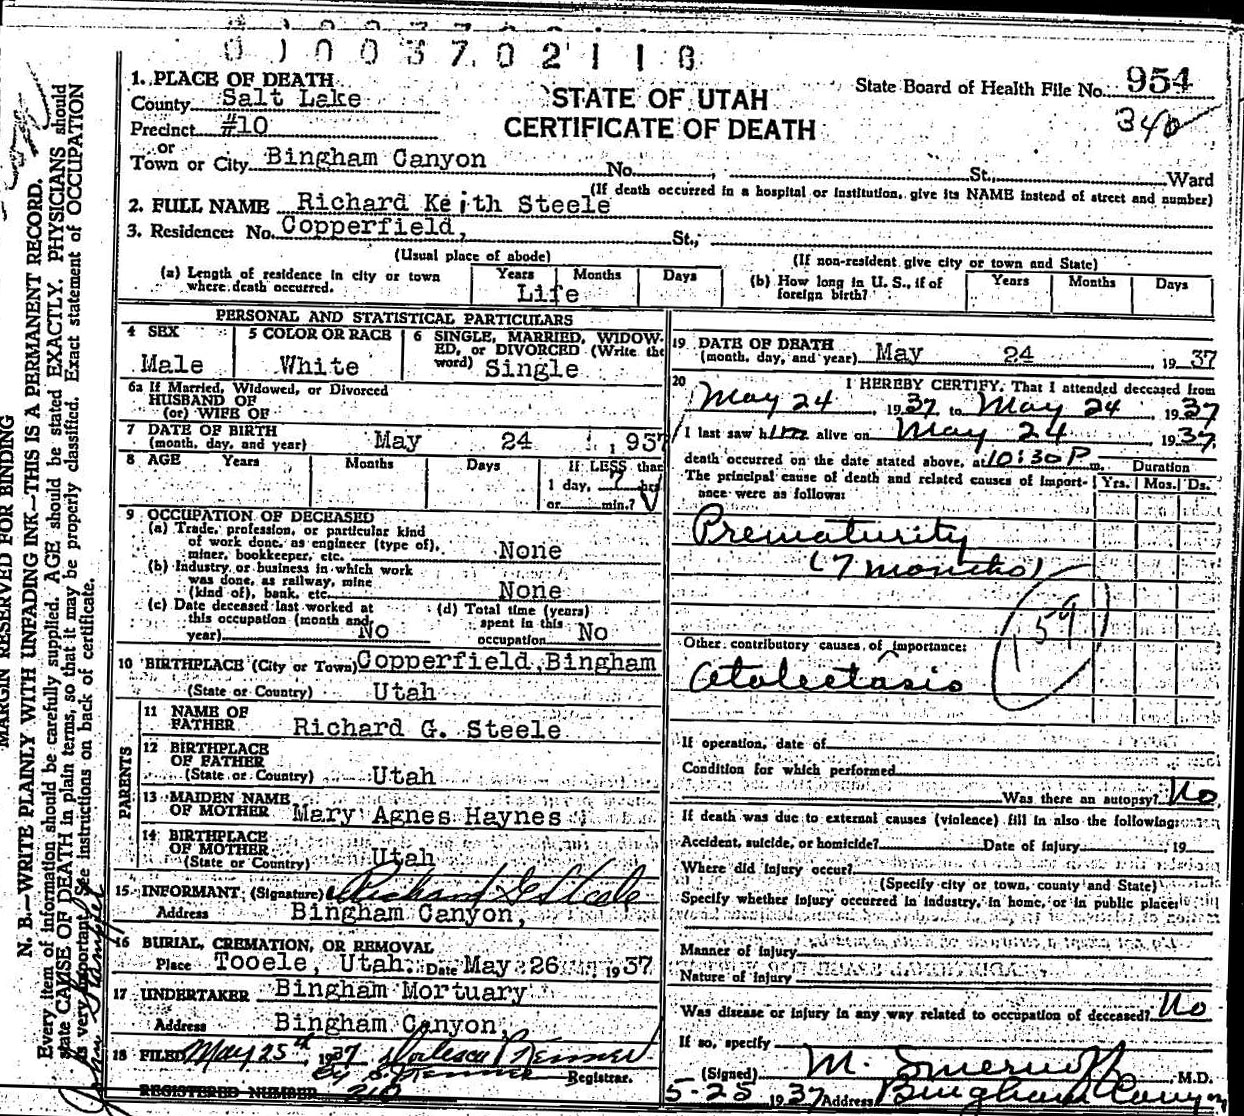 0 1 0 0 3 7 0 2 1 1 8
1. PLACE OF DEATH
County Salt Lake
Precinct #10
or
Town or City Bingham Canyon No. St., Ward
STATE OF UTAH
CERTIFICATE OF DEATH
State Board of Health File No. 954
340
(If death occurred in a hospital or institution, give its NAME instead of street and number)
2. FULL NAME Richard Keith Steele
3. Residence: No. Copperfield, St.,
(Usual place of abode) (If non-resident give city or town and State)
(a) Length of residence in city or town where death occurred. Years Months Days
Life
(b) How long in U. S., if of foreign birth? Years Months Days
PERSONAL AND STATISTICAL PARTICULARS
4 SEX
Male
5 COLOR OR RACE
White
6 SINGLE, MARRIED, WIDOWED, or DIVORCED (Write the word) Single
6a If Married, Widowed, or Divorced
HUSBAND OF
(or) WIFE OF
7 DATE OF BIRTH
(month, day, and year) May 24 , 937
8 AGE Years Months Days If LESS than
1 day, 7 hrs
or min.?
9 OCCUPATION OF DECEASED
(a) Trade, profession, or particular kind
of work done, as engineer (type of),
miner, bookkeeper, etc. None
(b) Industry or business in which work
was done, as railway, mine
(kind of), bank, etc. None
(c) Date deceased last worked at
this occupation (month and
year) No
(d) Total time (years)
spent in this
occupation No
10 BIRTHPLACE (City or Town) Copperfield, Bingham
(State or Country) Utah
PARENTS
11 NAME OF
FATHER Richard G. Steele
12 BIRTHPLACE
OF FATHER
(State or Country) Utah
13 MAIDEN NAME
OF MOTHER Mary Agnes Haynes
14 BIRTHPLACE
OF MOTHER
(State or Country) Utah
15 INFORMANT: (Signature) Richard G Steele
Address Bingham Canyon,
16 BURIAL, CREMATION, OR REMOVAL
Place Tooele, Utah. Date May 26 1937
17 UNDERTAKER Bingham Mortuary
Address Bingham Canyon,
18 FILED May 25th, 1937
Registrar.
REGISTERED NUMBER 210
19 DATE OF DEATH
(month, day, and year) May 24 , 19 37
20 I HEREBY CERTIFY, That I attended deceased from
May 24, 1937 to May 24, 1937
I last saw him alive on May 24 1937,
death occurred on the date stated above, at 10:30 P m. Duration
The principal cause of death and related causes of importance were as follows: Yrs. Mos. Ds.
Prematurity
(7 months)
159
Other contributory causes of importance:
Atalectasis
If operation, date of
Condition for which performed
Was there an autopsy? No
If death was due to external causes (violence) fill in also the following:
Accident, suicide, or homicide? Date of injury 19
Where did injury occur?
(Specify city or town, county and State)
Specify whether injury occurred in industry, in home, or in public place:
Manner of injury
Nature of injury
Was disease or injury in any way related to occupation of deceased? No
If so, specify
(Signed) M. , M.D.
5-25 1937 Address Bingham Canyon
MARGIN RESERVED FOR BINDING
N. B.—WRITE PLAINLY WITH UNFADING INK—THIS IS A PERMANENT RECORD.
Every item of information should be carefully supplied. AGE should be stated EXACTLY. PHYSICIANS should
state CAUSE OF DEATH in plain terms, so that it may be properly classified. Exact statement of OCCUPATION
is very important. See instructions on back of certificate.